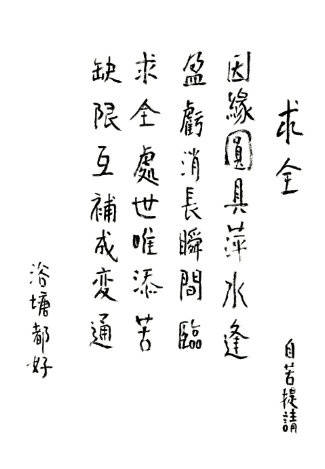 求全
因緣圓具萍水逢
盈虧消長瞬間臨
求全處世唯添苦
缺限互補成变通
自苦提請
浴塘都好